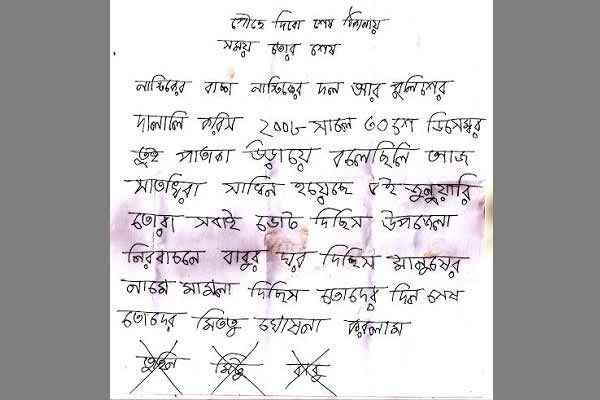 পৌছে দিবো শেষ ঠিকানায়
সময় তোর শেষ
নাস্তিকের বাচ্চা নাস্তিকের দল আর পুলিশের
দালালি করিস ২০০৮ সালে ৩০শে ডিসেম্বর
তুই পাতাকা উড়ায়ে বলেছিলি আজ
সাতক্ষিরা সাধিন হয়েছে ৫ই জানুয়ারি
তোরা সবাই ভোট দিছিস উপজেলা
নিরবাচনে বাবুর ঘর দিছিস মানুষের
নামে মামলা দিছিস তোদের দিন শেষ
তোদের মিততু ঘোষনা করলাম
তুহিন মিঠু বাবু